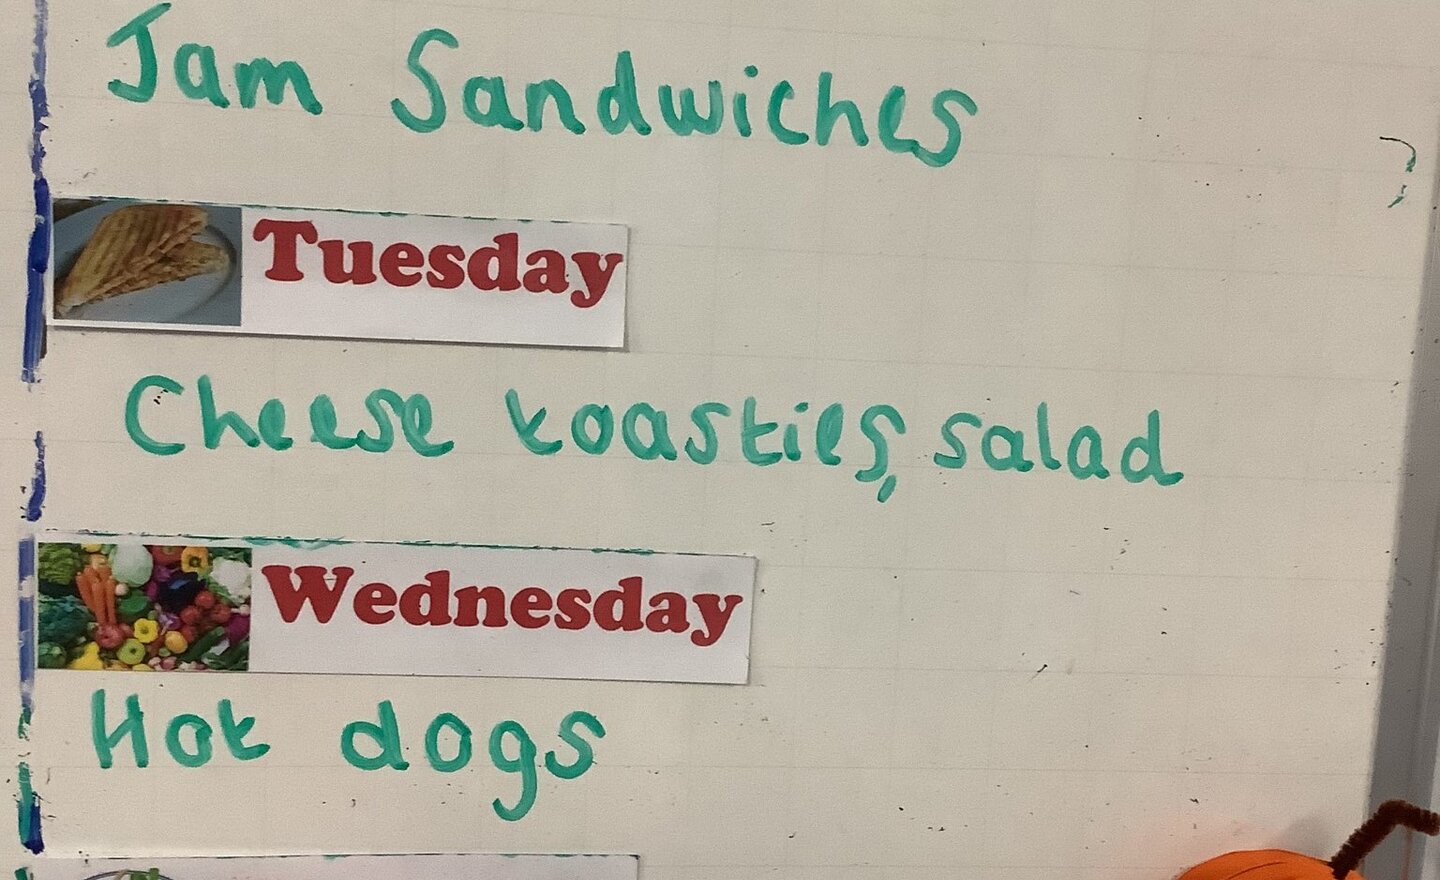 Jam Sandwiches
Tuesday
Cheese toasties, salad
Wednesday
Hot dogs